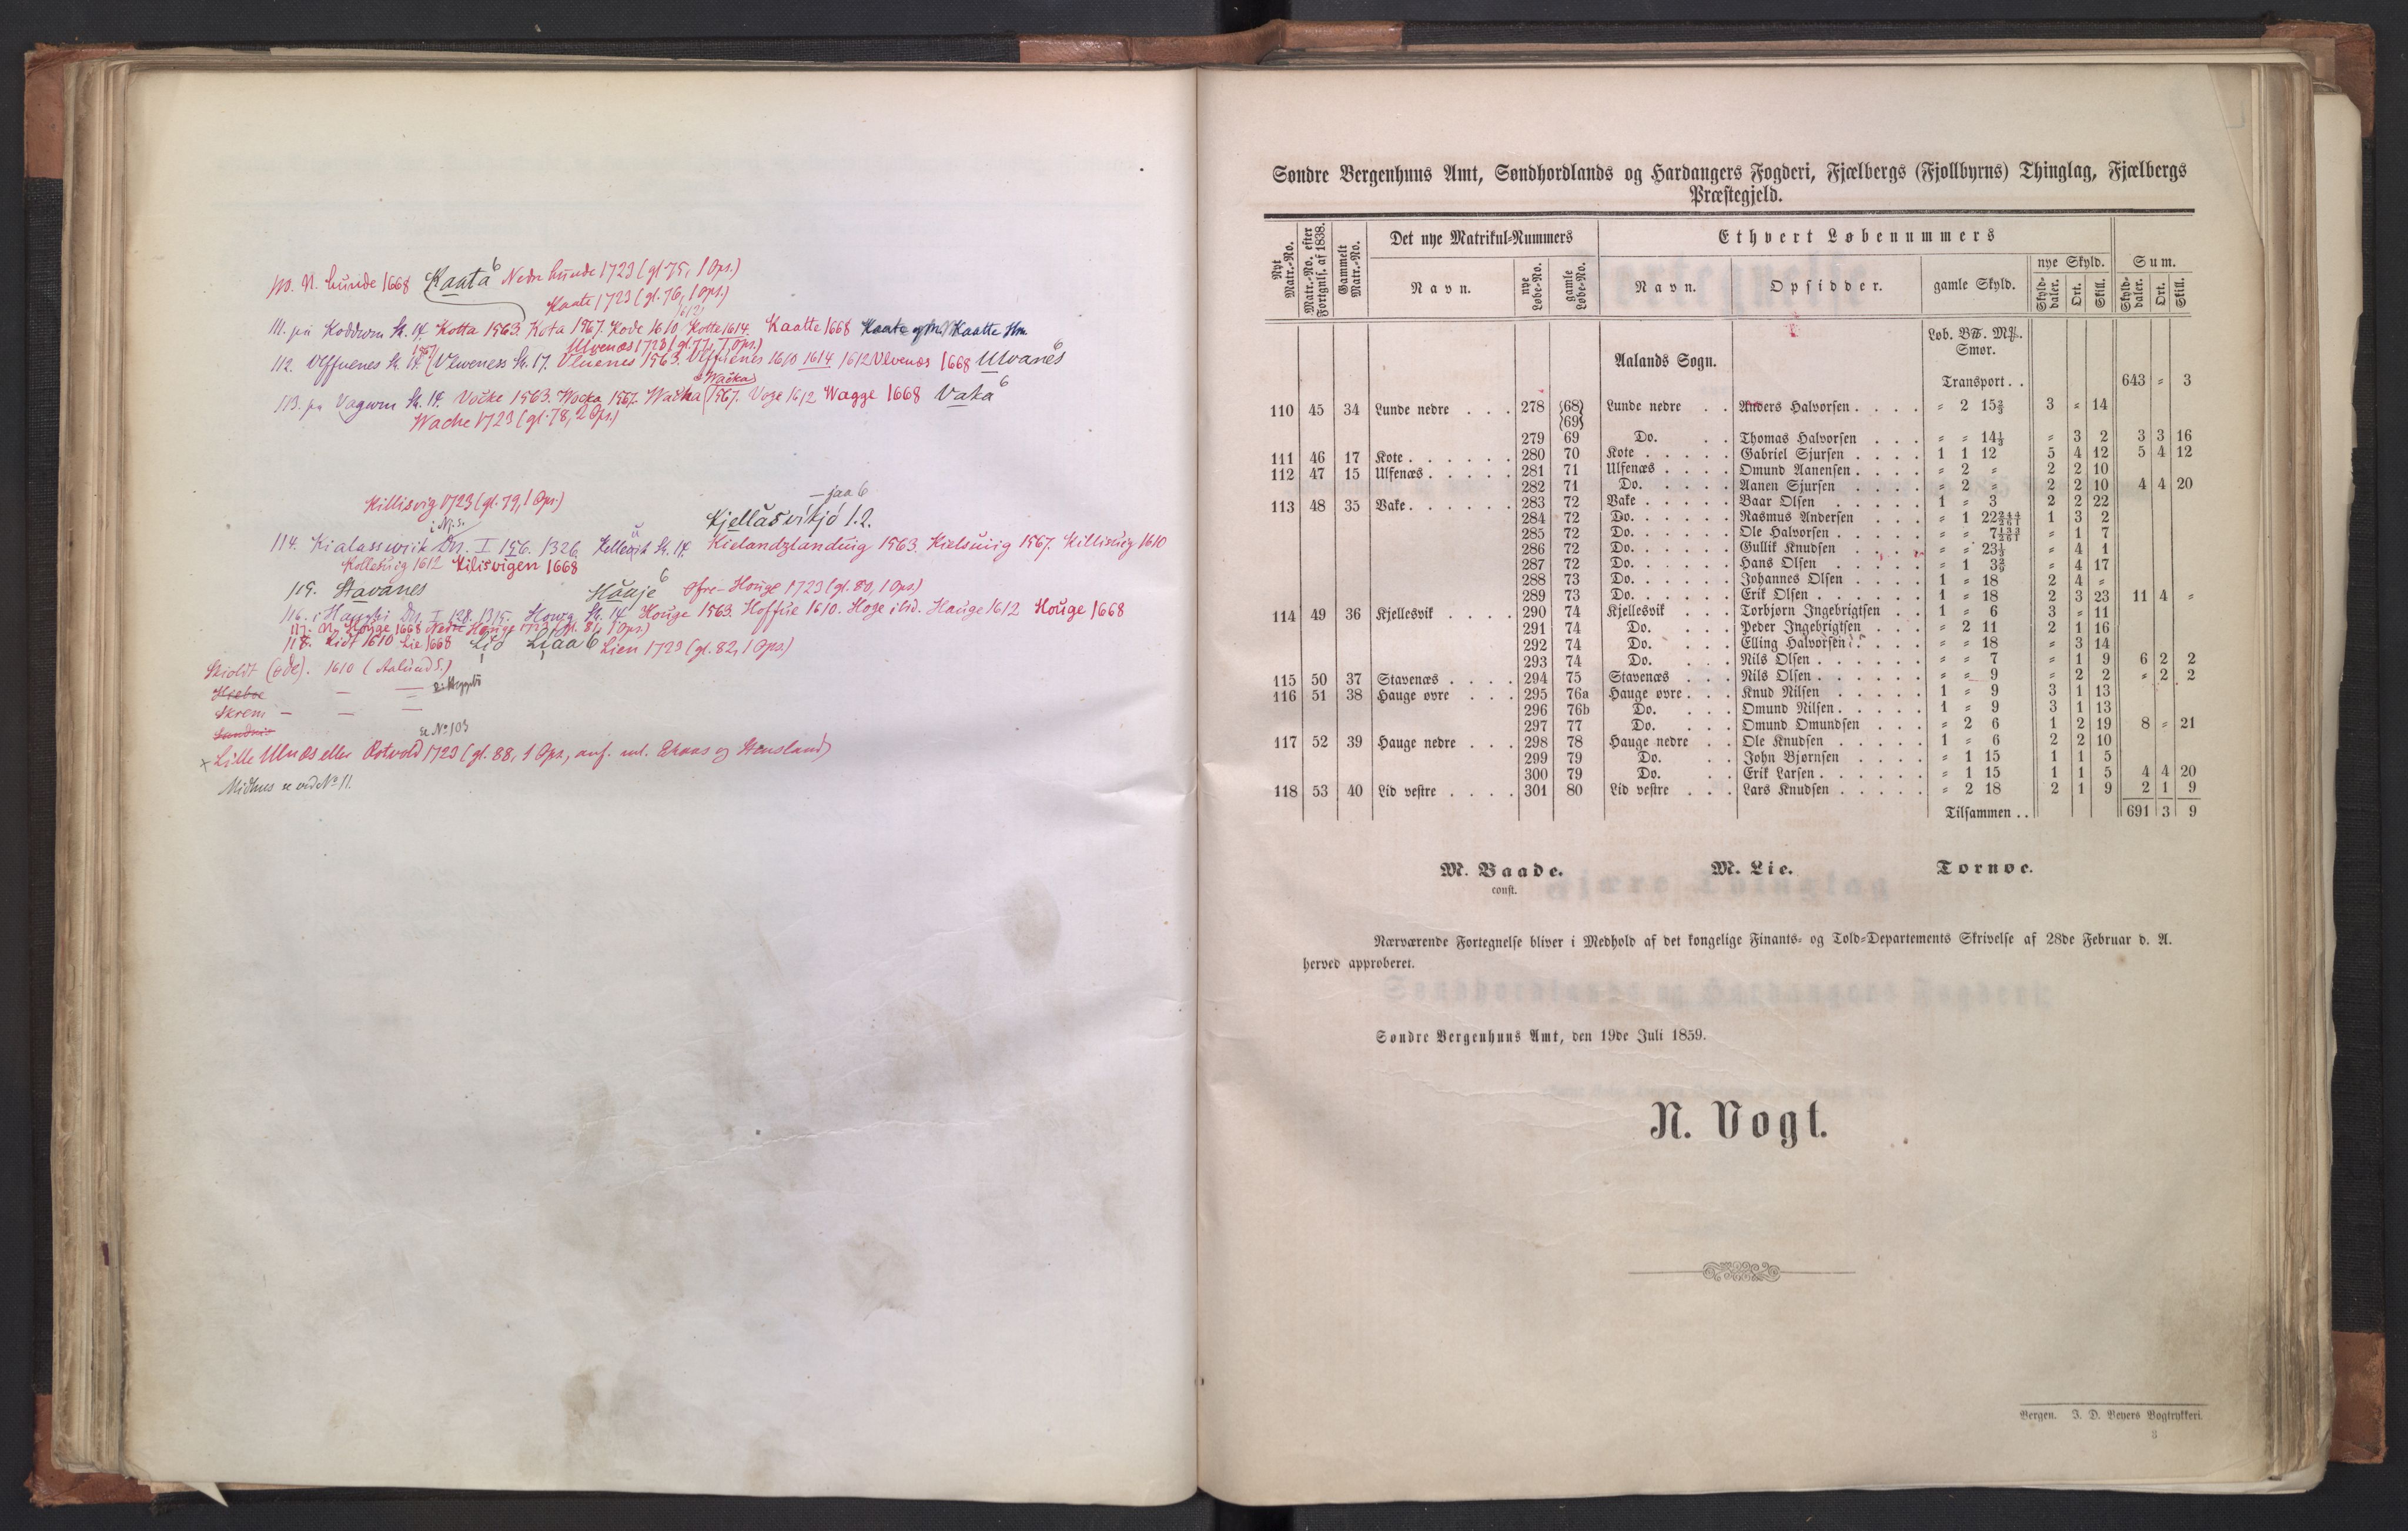 110. N. Lunde 1668 Kaata 6 Nedre Lunde 1723 (gl. 75, 1 Ops.)
Kaate 1723 (gl. 76, 1 Ops.)
111. pa Koddwm St. 14. Kotta 1563. Kota 1567. Kode 1610. Kotte 1614. Kaatte 1668
Ulvenæs 1723 (gl. 77, 1 Ops.)
112. Vlffuenes St. 14. Vlweness St. 17. Vluenes 1563. Vlffuenes 1610 1614. 1612 Ulvenæs 1668 Ulvanes 6
113. pa Vagwm St. 14. Vocke 1563. Wocka 1567. Wacka 1567. Voge 1612 Wagge 1668 Vaka 6
Wacke 1723 (gl. 78, 2 Ops.)
Killisvig 1723 (gl. 79, 1 Ops.)
- jaa 6
Kjellasvikjo 1.2.
114. Kialasswiik Dn. I 156. 1326. Kelleuik St. 14. Kielandzlanduig 1563. Kielsuiig 1567. Killisuig 1610
Kollesuig 1612 Kilisvigen 1668
115. Stavanes Hauje 6 Øfre-Houge 1723 (gl. 80, 1 Ops.)
116. i Haughi Dn. I 128. 1315. Howg St. 14. Houge 1563. Hoffue 1610. Hoge ibid. Hauge 1612 Houge 1668
117. N. Houge 1668 Nedre Houge 1723 (gl. 81, 1 Ops.)
118. Lidt 1610 Lie 1668 Lid Liaa 6 Lien 1723 (gl. 82, 1 Ops.)
Skioldt (øde). 1610 (Aalund S.)
Skrem — — —
Sandnis se No 103
+ Lille Ulnæs eller Rotvold 1723 (gl. 88, 1 Ops,
Midhus se ved No 11.
Søndre Bergenhuus Amt, Søndhordlands og Hardangers Fogderi, Fjælbergs (Fjollbyrns) Thinglag, Fjælbergs
Præstegjeld.
Nyt Matr.-No. Matr.-No. efter Fortgnlf. af 1838. Gammelt Matr.-No. Det nye Matrikul-Nummers Ethvert Løbenummers
Navn. nye Løbe-No. gamle Løbe-No. Navn. Opsidder. gamle Skyld. nye Skyld. Sum.
Skylddaler. Ort. Skill. Skylddaler. Ort. Skill.
Løb. B℔. M℔.
Smør.
Aalands Sogn.
Transport . . 643 = 3
110 45 34 Lunde nedre . . . 278 (68) (69) Lunde nedre . . Anders Halvorsen . . . . = 2 15⅔ 3 = 14
279 69 Do. . . Thomas Halvorsen . . . = = 14⅓ = 3 2 3 3 16
111 46 17 Kote . . . . . . 280 70 Kote . . . . . Gabriel Sjursen . . . . 1 1 12 5 4 12 5 4 12
112 47 15 Ulfenæs . . . . . 281 71 Ulfenæs . . . . Omund Aanensen . . . . = 2 = 2 2 10
282 71 Do. . . . . . Aanen Sjursen . . . . = 2 = 2 2 10 4 4 20
113 48 35 Vake . . . . . . 283 72 Vake . . . . . Baar Olsen . . . . . 1 = 3 2 2 22
284 72 Do. . . . . . Rasmus Andersen . . . = 1 22 244/261 1 3 2
285 72 Do. . . . . . Ole Halvorsen . . . . . = = 7 133/261 = 1 7
286 72 Do. . . . . . Gullik Knudsen . . . . = = 23⅓ = 4 1
287 72 Do. . . . . . Hans Olsen . . . . . = 1 3 2/9 = 4 17
288 73 Do. . . . . . Johannes Olsen . . . . 1 = 18 2 4 =
289 73 Do. . . . . . Erik Olsen . . . . . . 1 = 18 2 3 23 11 4 =
114 49 36 Kjellesvik . . . . 290 74 Kjellesvik . . . Torbjørn Ingebrigtsen . . 1 = 6 3 = 11
291 74 Do. . . . Peder Ingebrigtsen . . . = 2 11 2 1 16
292 74 Do. . . . Elling Halvorsen . . . . = = 18 = 3 14
293 74 Do. . . . Nils Olsen . . . . . . = = 7 = 1 9 6 2 2
115 50 37 Stavenæs . . . . 294 75 Stavenæs . . . Nils Olsen . . . . . . = = 9 = 2 2 = 2 2
116 51 38 Hauge øvre . . . 295 76a Hauge øvre . . . Knud Nilsen . . . . . 1 = 9 3 1 13
296 76b Do. . . . Omund Nilsen . . . . . 1 = 9 3 1 13
297 77 Do. . . . Omund Omundsen . . . = 2 6 1 2 19 8 = 21
117 52 39 Hauge nedre . . . 298 78 Hauge nedre . . Ole Knudsen . . . . . 1 = 6 2 2 10
299 79 Do. . . John Bjørnsen . . . . = 1 15 1 1 5
300 79 Do. . . Erik Larsen . . . . . . = 1 15 1 1 5 4 4 20
118 53 40 Lid vestre . . . . 301 80 Lid vestre . . . Lars Knudsen . . . . . = 2 18 2 1 9 2 1 9
Tilsammen . . 691 3 9
M. Baade. M. Lie. Tornøe.
const.
Nærværende Fortegnelse bliver i Medhold af det kongelige Finants- og Told-Departements Skrivelse af 28de Februar d. A.
herved approberet.
Søndre Bergenhuus Amt, den 19de Juli 1859.
N. Vogt.
Bergen. J. D. Beyers Bogtrykkeri.
8